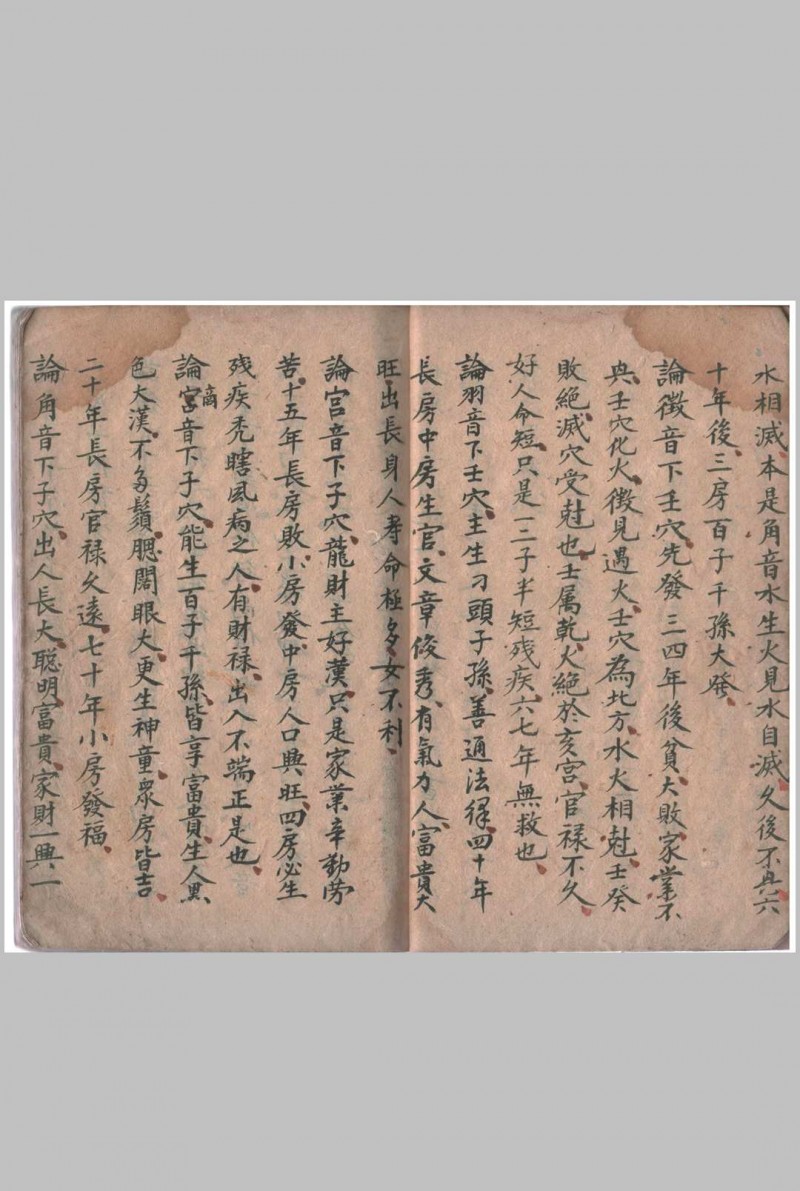 水相滅本是角音水生火見水自滅久後不興六
十年後三房百子千孫大發
論徵音下壬穴先發三四年後貧大敗家業不
興壬穴化火徵見遇火壬穴為北方水火相尅壬癸
敗絕滅穴受尅也壬属乾火絕於亥宮官禄不久
好人命短只是一二子半短残疾六七年無救也
論羽音下壬穴主生刁頭子孫善通法律四十年
長房中房生官文章俊秀有氣力人富貴大
旺出長身人寿命極多女不利
論宫音下子穴龍財主好漢只是家業辛勤劳
苦十五年長房敗小房發中房人口興旺四房必生
残疾禿瞎風病之人有財禄出入不端正是也
論宮商音下子穴能生百子千孫皆享富貴生人黒
色大漢不多鬚腮闊眼大更生神童衆房皆吉
二十年長房官禄久遠七十年小房發福
論角音下子穴出人長大聰明富貴家財一興一